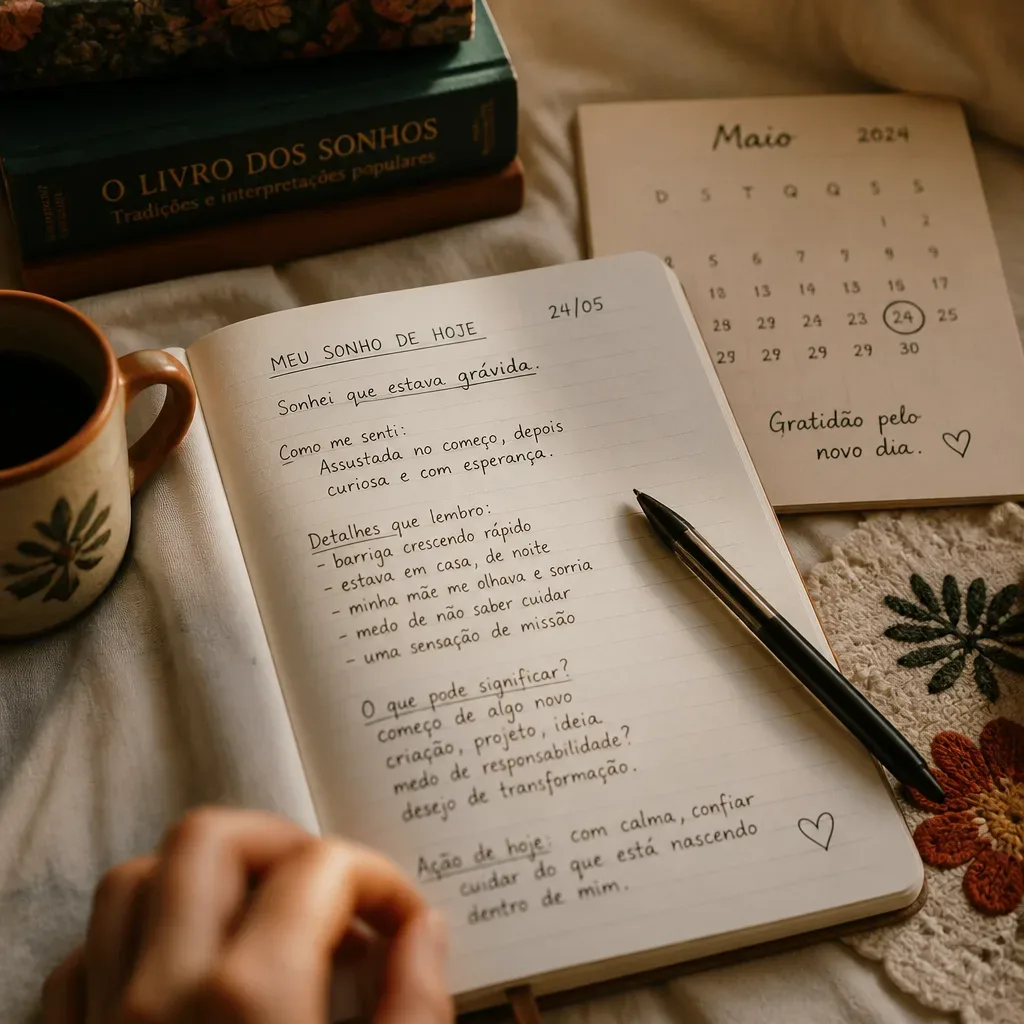 O LIVRO DOS SONHOS
Tradições e interpretações populares
Maio 2024
D S T Q Q S S
1 2
5 6 7 7 8 9
18 13 14 13 16 17
28 29 24 23 24 25
29 29 29 29 30
Gratidão pelo
novo dia.
24/05
MEU SONHO DE HOJE
Sonhei que estava grávida.
Como me senti:
Assustada no começo, depois
curiosa e com esperança.
Detalhes que lembro:
- barriga crescendo rápido
- estava em casa, de noite
- minha mãe me olhava e sorria
- medo de não saber cuidar
- uma sensação de missão
O que pode significar?
começo de algo novo
criação, projeto, ideia
medo de responsabilidade?
desejo de transformação.
Ação de hoje: com calma, confiar
cuidar do que está nascendo
dentro de mim.